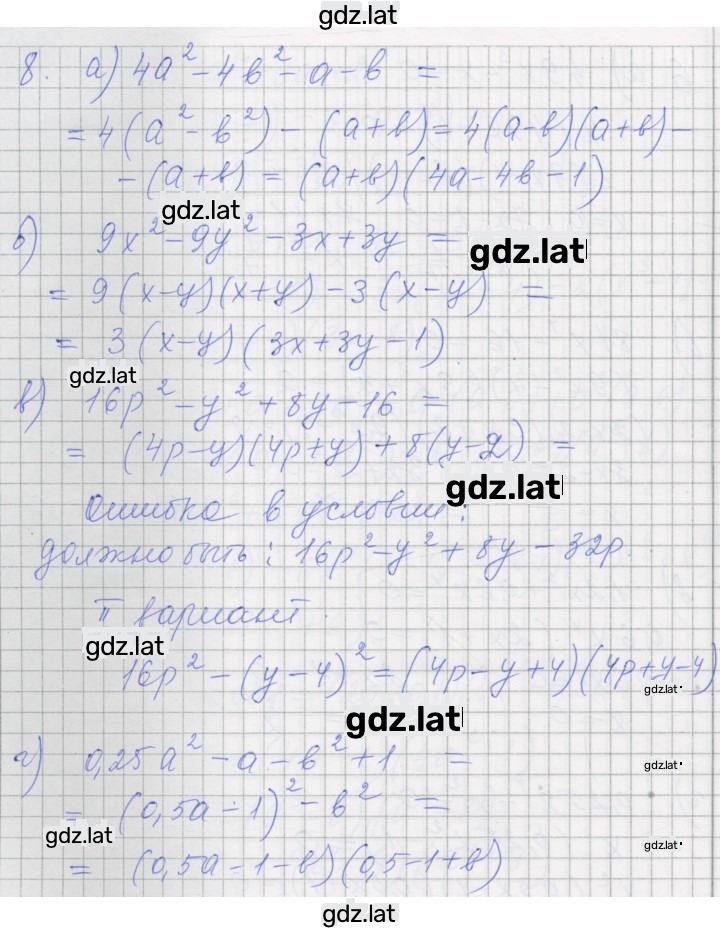 gdz.lat
8. а) 4a² - 4в² - a - в =
= 4(a² - в²) - (a + в) = 4(a - в)(a + в) -
- (a + в) = (a + в)(4a - 4в - 1)
gdz.lat
б) 9x² - 9y² - 3x + 3y =
gdz.lat
= 9(x - y)(x + y) - 3(x - y) =
= 3(x - y)(3x + 3y - 1)
gdz.lat
в) 16p² - y² + 8y - 16 =
= (4p - y)(4p + y) + 8(y - 2) =
gdz.lat
Ошибка в условии:
должно быть: 16p² - y² + 8y - 32p.
II вариант.
gdz.lat
16p² - (y - 4)² = (4p - y + 4)(4p + y - 4)
gdz.lat
gdz.lat
г) 0,25a² - a - в² + 1 =
gdz.lat
= (0,5a - 1)² - в² =
gdz.lat
gdz.lat
= (0,5a - 1 - в)(0,5 - 1 + в)
gdz.lat